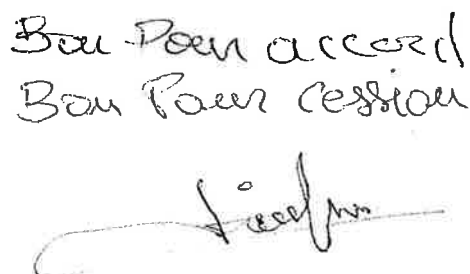 Bon Pour accord
Bon Pour cession